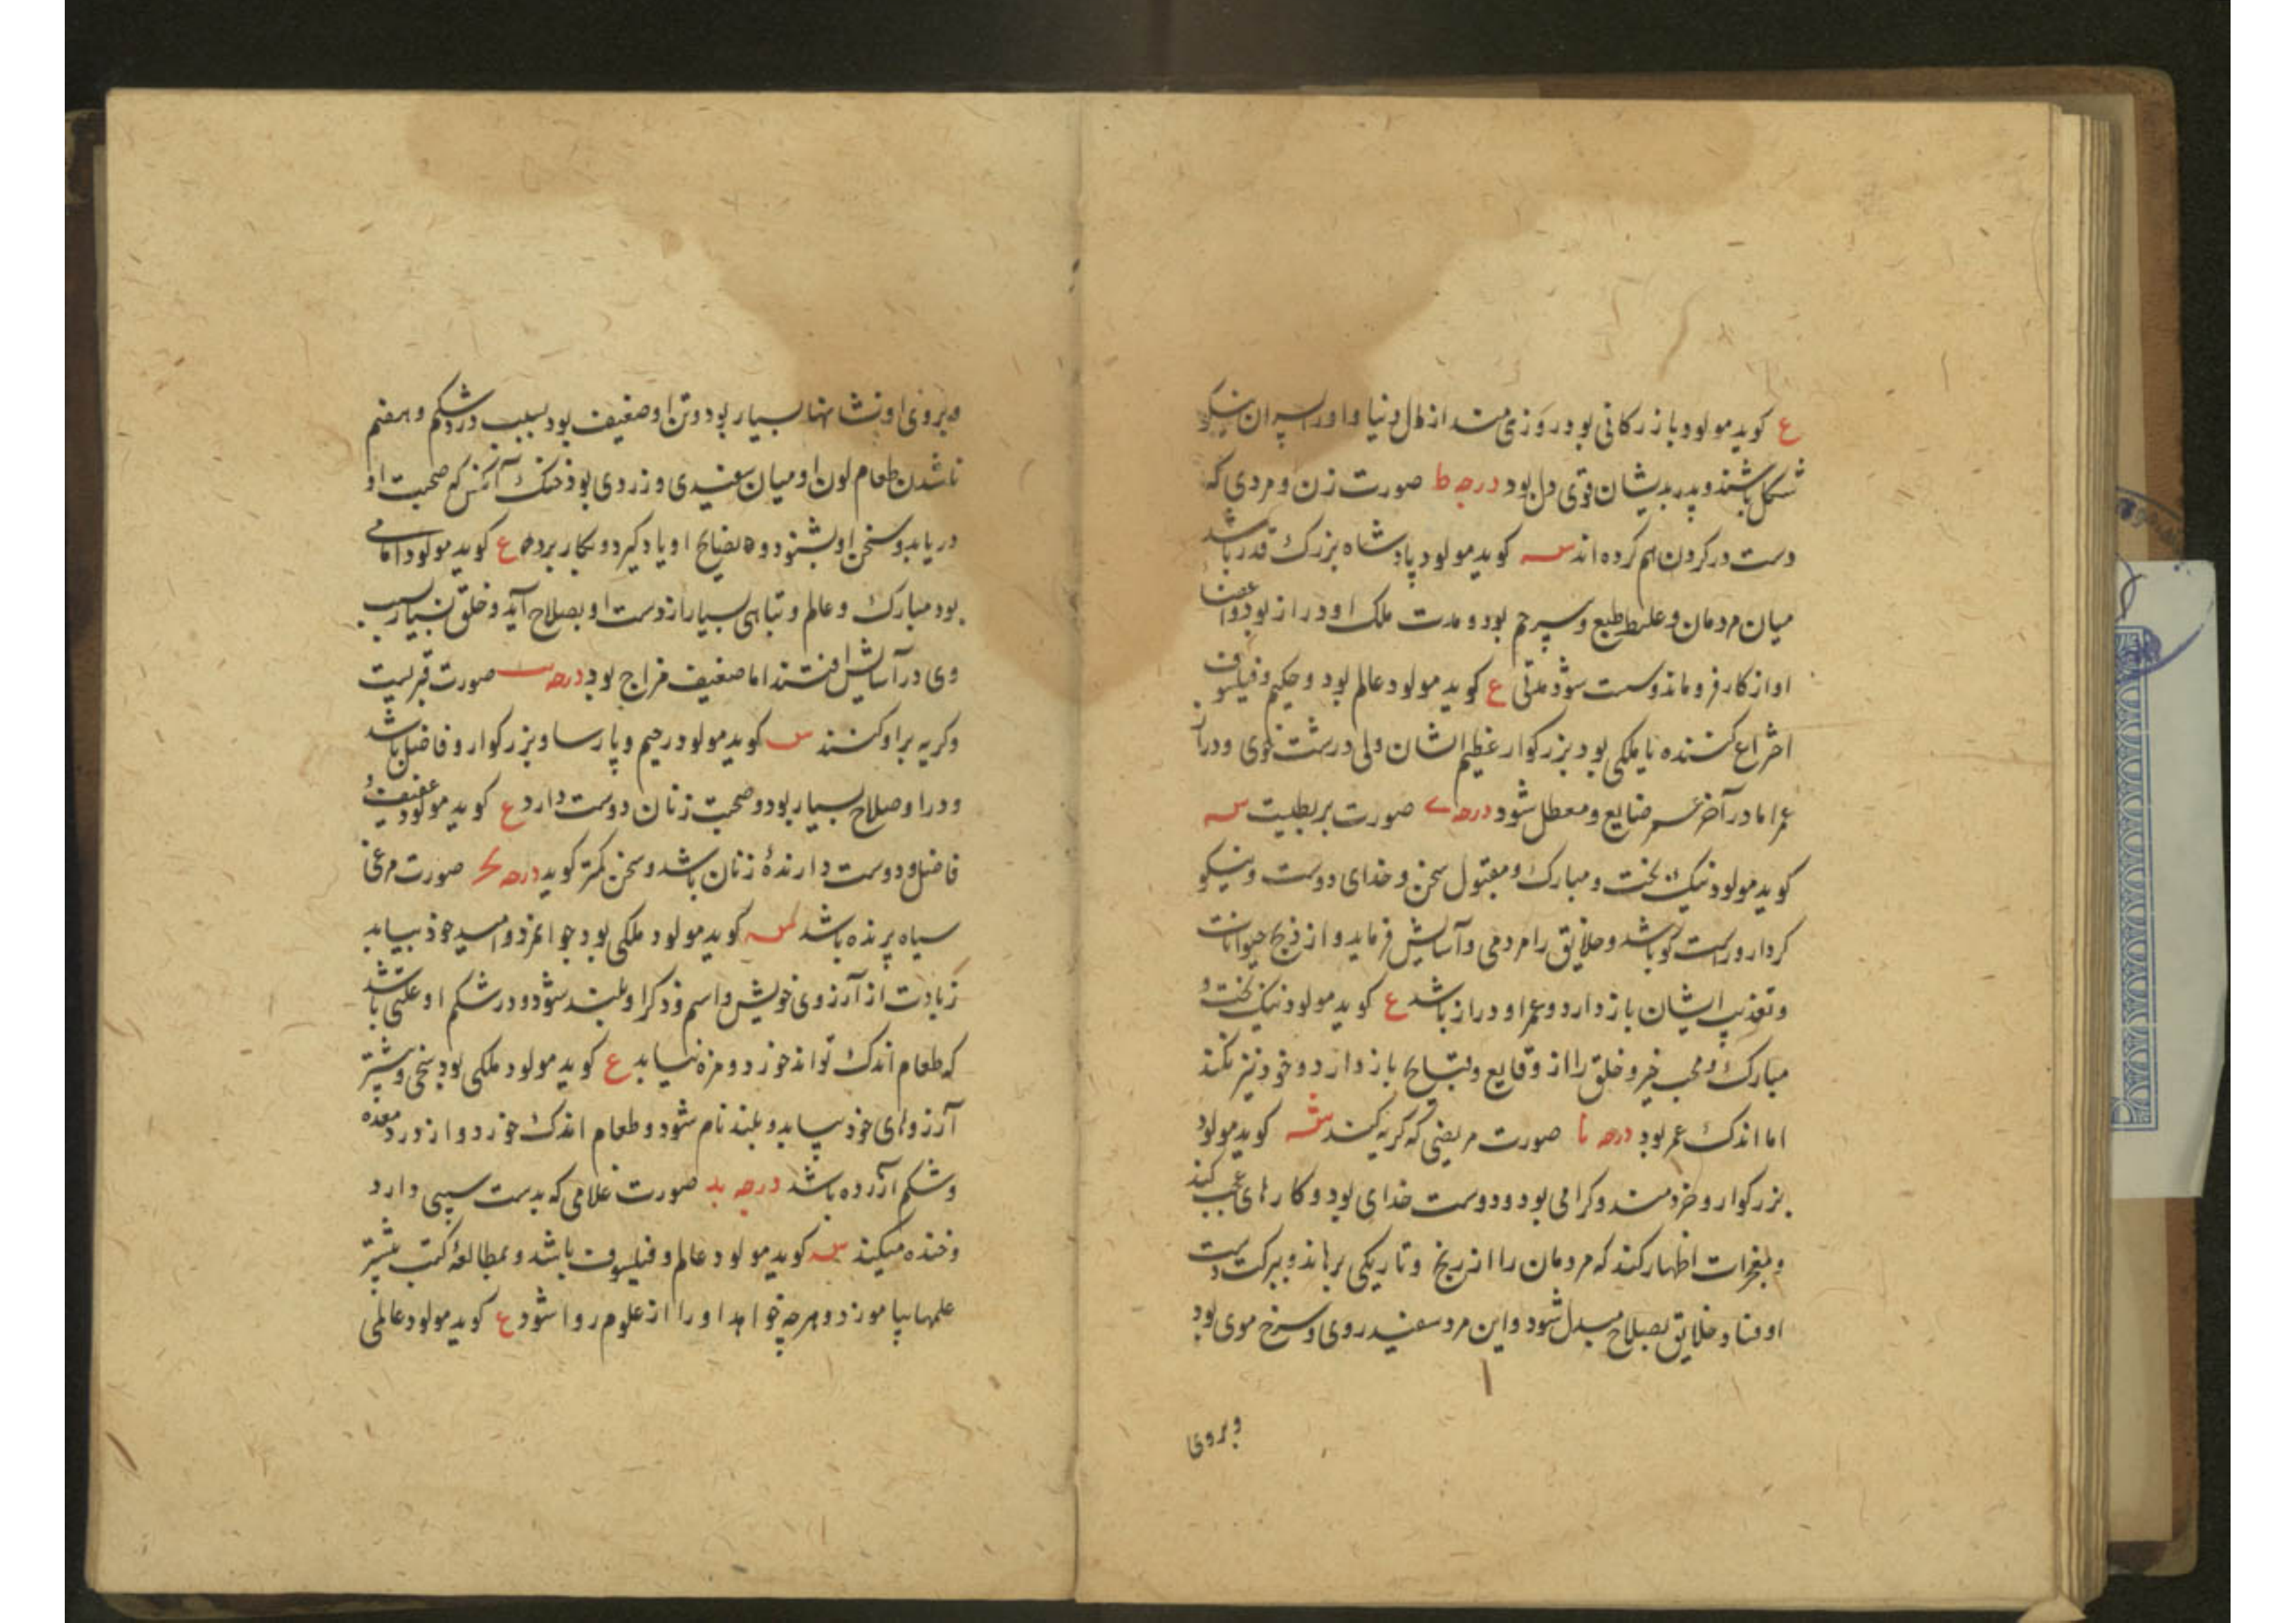 ع کوید مولود بازرکانی بود روزی مند از مال دنیا و او را پسران نیکو
شکل باشند و پدر بدیشان قوی دل بود درجه ط صورت زن و مردی که
دست در کردن هم کرده اند س کوید مولود پادشاه بزرک قدر باشد
میان مردمان و غلیظ طبع و بود و مدت ملک او دراز بود و اعضا
او از کار فرو ماند و سست شود مدتی ع کوید مولود عالم بود و حکیم و فیلسوف
اختراع کننده یا ملکی بود بزرکوار عظیم الشان ولی درشت خوی و دراز
عمر اما در آخر عمر ضایع و معطل شود درجه ی صورت بربطیست س
کوید مولود نیک بخت و مبارک و مقبول سخن و خدای دوست و نیکو
کردار و راست کو باشد و خلایق را مردمی و آسایش فرماید و از ذبح حیوانات
و تعذیب ایشان باز دارد و عمر او دراز باشد ع کوید مولود نیک بخت و
مبارک و محب خیر و خلق را از وقایع و قبایح باز دارد و خود نیز نکند
اما اندک عمر بود درجه یا صورت مریضی که کریه کند س کوید مولود
بزرکوار و خردمند و کرامی بود و دوست خدای بود و کارهای عجب کند
و معجزات اظهار کند که مردمان را از رنج و تاریکی برهاند و ببرکت دست
او فساد خلایق بصلاح مبدل شود و این مرد سفید روی و سرخ موی بود
وبروی
وبروی او نشانها بسیار بود و تن او ضعیف بود بسبب درد شکم و هضم
ناشدن طعام لون او میان سفیدی و زردی بود خنک آنکس که صحبت او
دریابد و سخن او بشنود و نصایح او یاد کیرد و بکار برد ع کوید مولود امامی
بود مبارک و عالم و تباهی بسیار از دست او بصلاح آید و خلق بسیار بسبب
وی در آسایش افتند اما ضعیف مزاج بود درجه یب صورت قبریست
و کریه بر او کنند س کوید مولود رحیم و پارسا و بزرکوار و فاضل باشد
و در او صلاح بسیار بود و صحبت زنان دوست دارد ع کوید مولود عفیف و
فاضل و دوست دارندۀ زنان باشد و سخن کمتر کوید درجه یج صورت مرغی
سیاه پرنده باشد س کوید مولود ملکی بود جوانمرد و امید خود بیابد
زیادت از آرزوی خویش و اسم و ذکر او بلند شود و در شکم او علتی باشد
که طعام اندک تواند خورد و مزه نیابد ع کوید مولود ملکی بود سخی و بیشتر
آرزوهای خود بیابد و بلند نام شود و طعام اندک خورد و از درد معده
و شکم آزرده باشد درجه ید صورت غلامی که بدست سیبی دارد
و خنده میکند س کوید مولود عالم و فیلسوف باشد و بمطالعۀ کتب بیشتر
علمها بیاموزد و هرچه خواهد او را از علوم روا شود ع کوید مولود عالمی